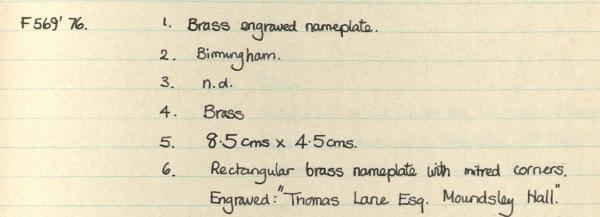 F569'76. 1. Brass engraved nameplate.
2. Birmingham.
3. n.d.
4. Brass
5. 8.5 cms x 4.5 cms.
6. Rectangular brass nameplate with mitred corners.
Engraved: "Thomas Lane Esq. Moundsley Hall".